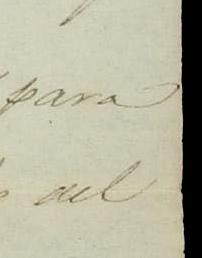 para
del